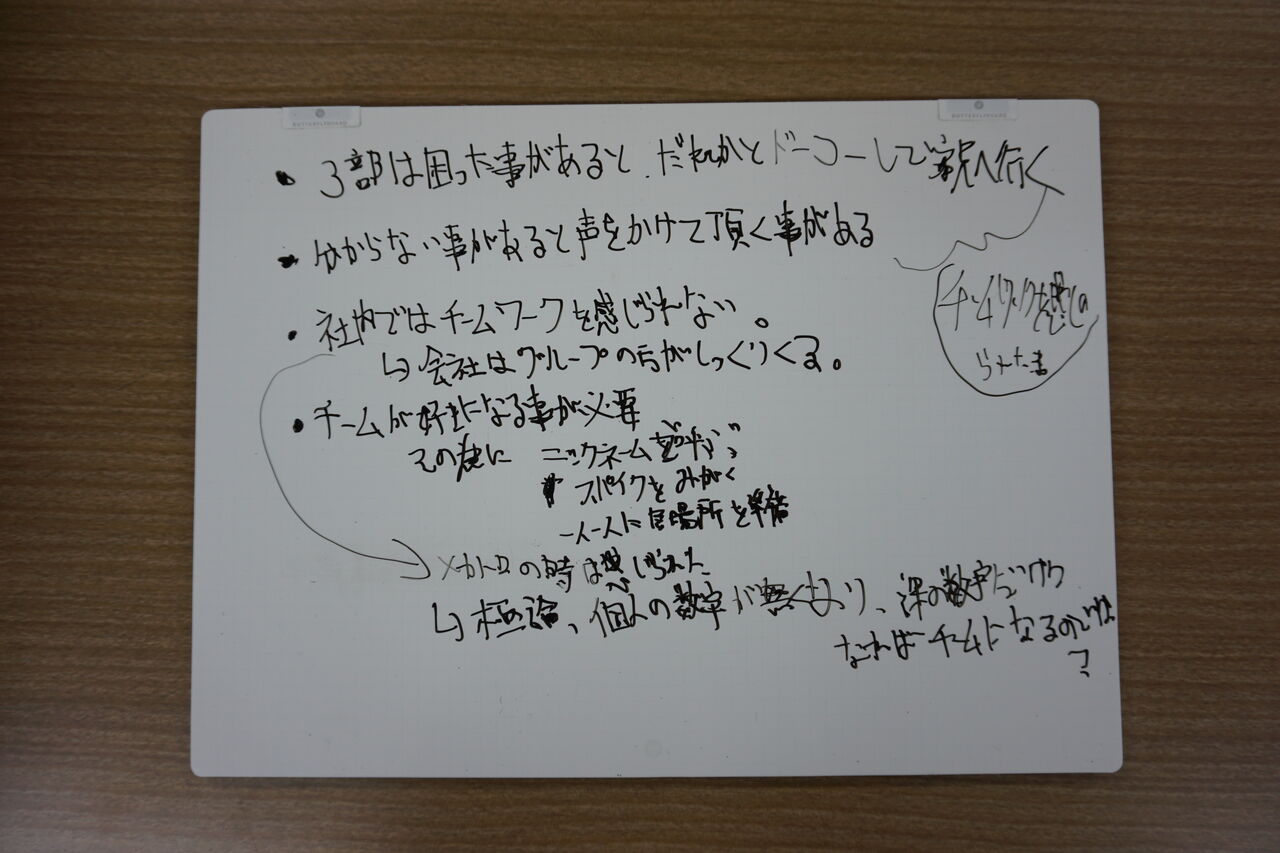 BUTTERFLYBOARD
BUTTERFLYBOARD
・3部は困った事があると、だれかとドーコーして へ行く
・分からない事があると声をかけて頂く事がある
チームワークを感じ
られた事
・社内ではチームワークを感じられない。
↳会社はグループの方がしっくりくる。
・チームが好きになる事が必要
その為に ニックネームを呼ぶ
スパイクをみがく
一人一人に居場所を準備
→メカトロの時は感じられた
↳極論、個人の数字が無くなり、課の数字だけに
なればチームになるのでは
?